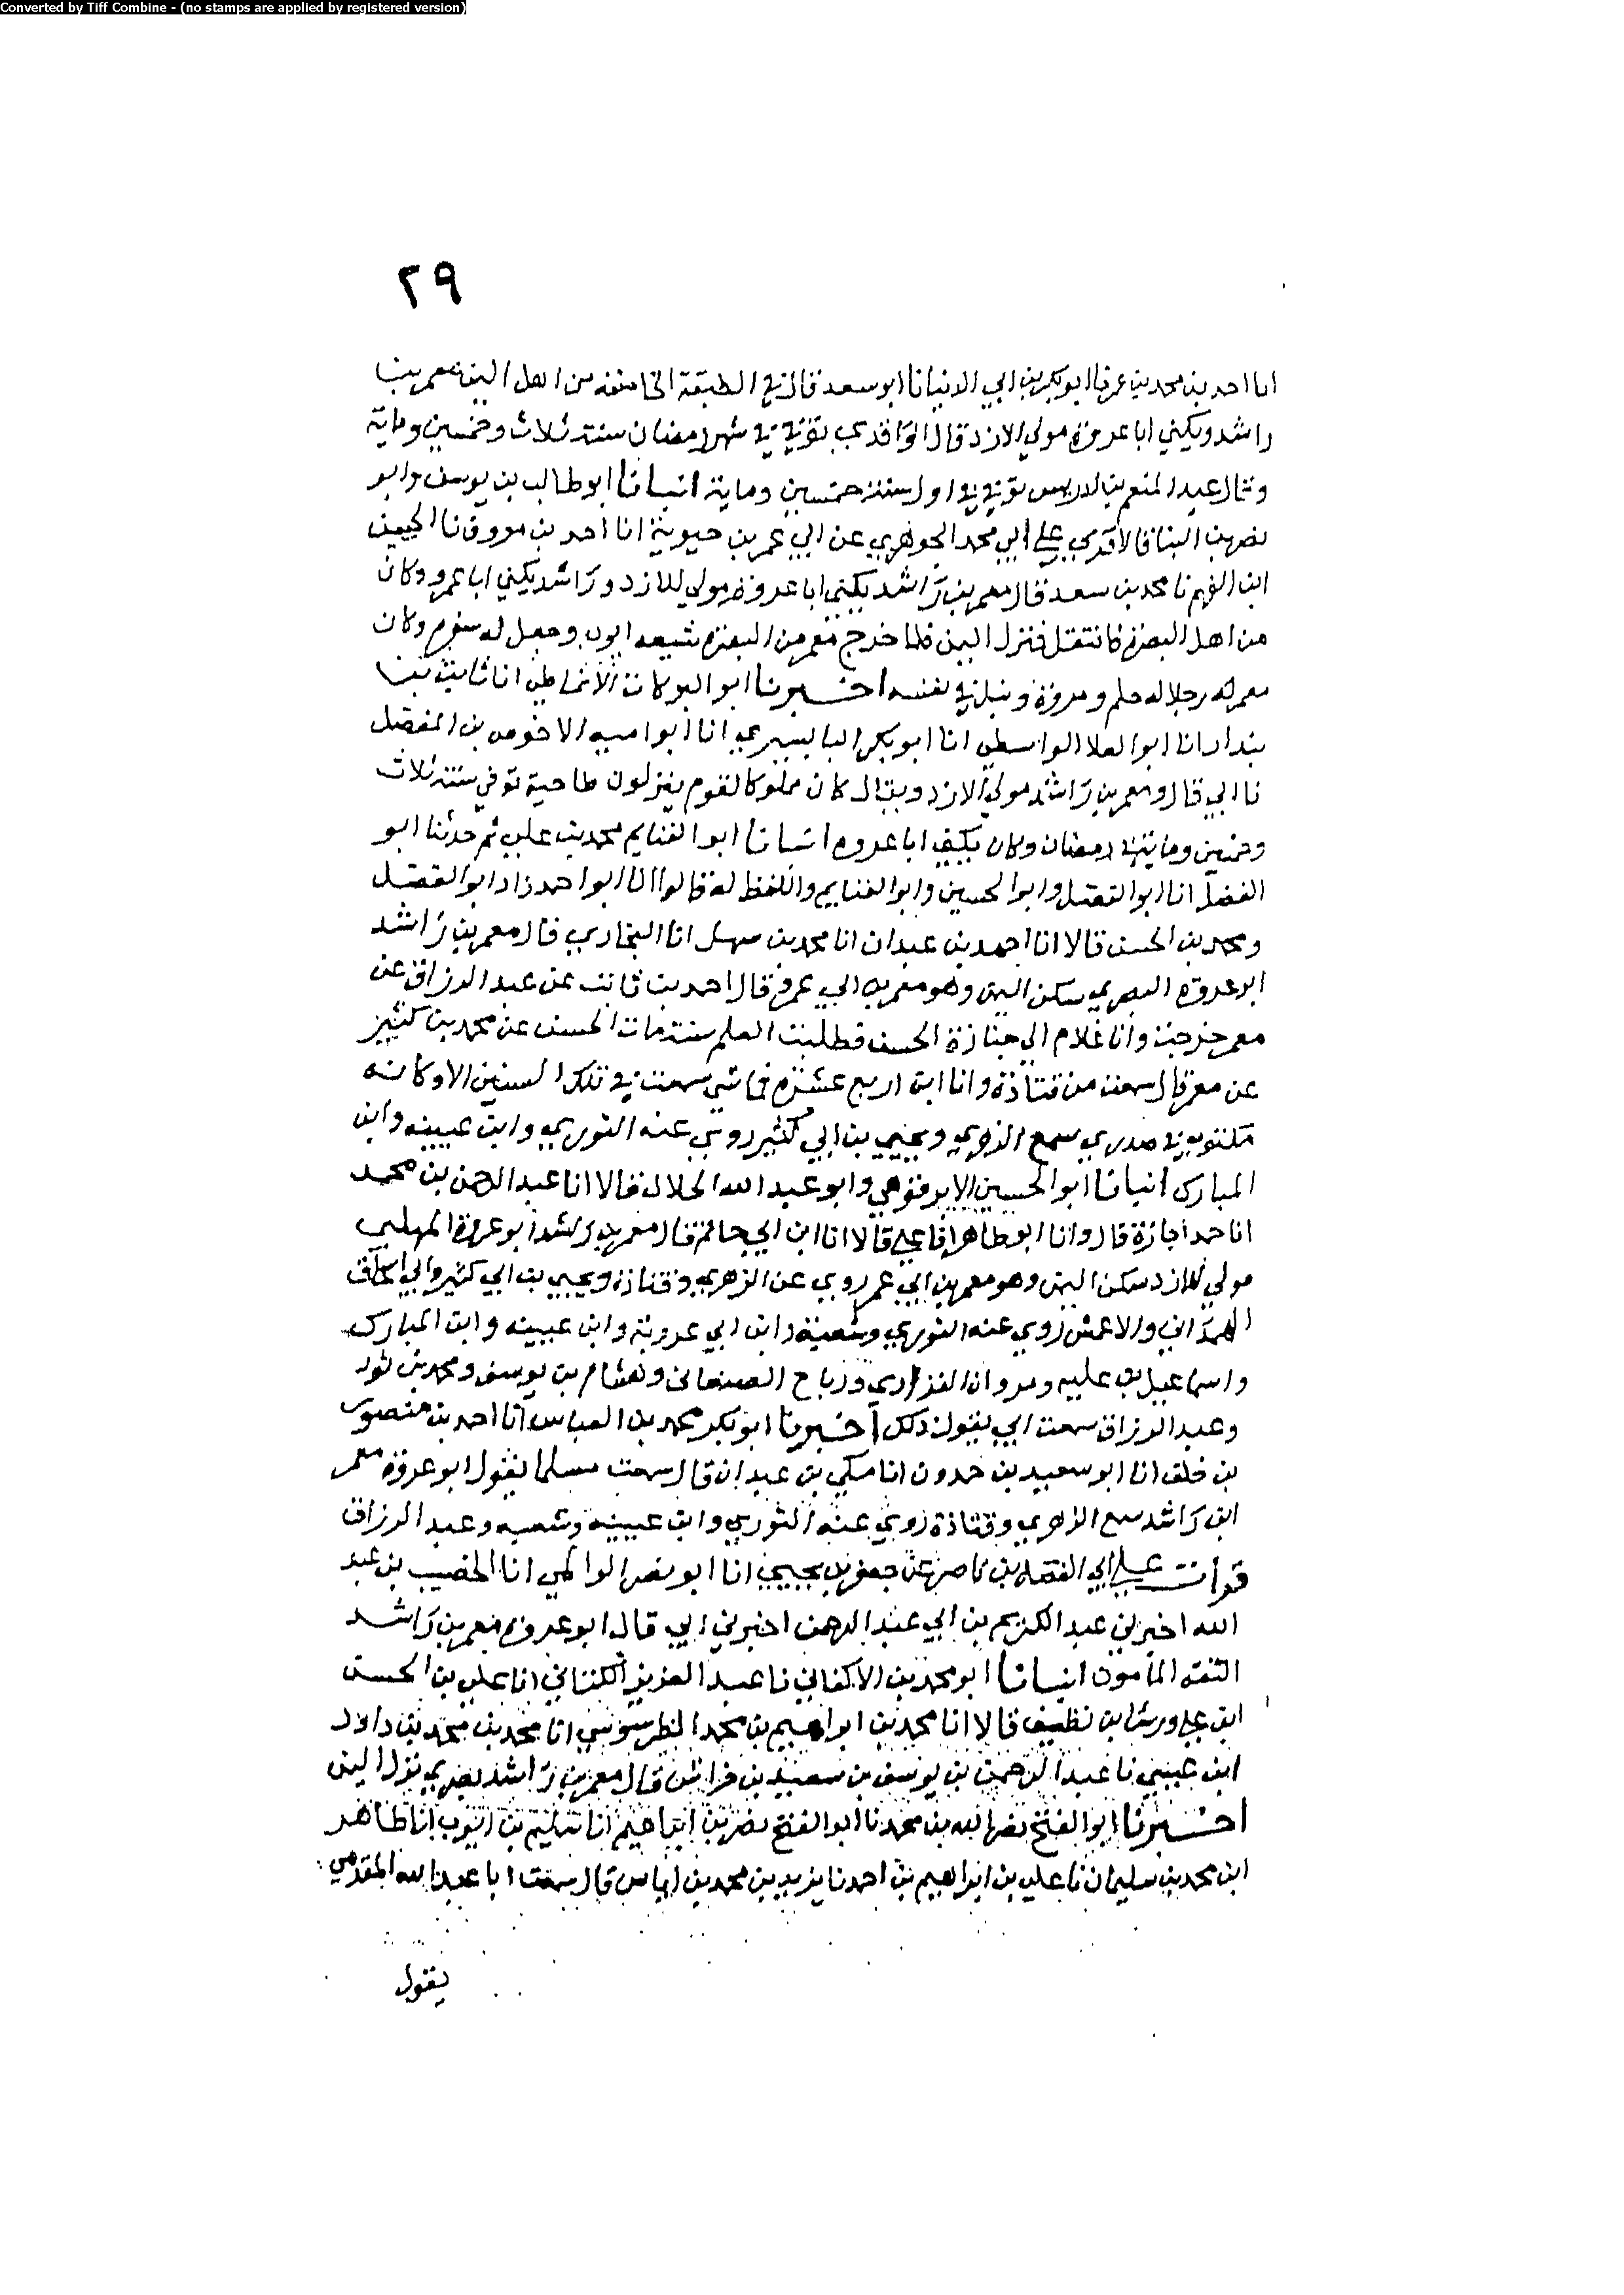 Converted by Tiff Combine - (no stamps are applied by registered version)
٢٩
انا احمد بن محمد بن عمر نا ابو بكر بن ابي الدنيا نا ابو سعد قال في الطبقة الثالثة من اهل اليمن معمر بن
راشد ويكني ابا عروة مولي الازد قال الواقدي توفي في شهر رمضان سنة ثلاث وخمسين وماية
وقال عبد المنعم بن ادريس توفي في اول سنة خمسين وماية انبانا ابو طالب بن يوسف وابو
نصر بن البنا قالا قري علي ابي محمد الجوهري عن ابي عمر بن حيوية انا احمد بن معروف نا الحسين
ابن الفهم نا محمد بن سعد قال معمر بن راشد يكني ابا عروة مولي للازد وراشد يكني ابا عمرو وكان
من اهل البصرة فانتقل فنزل اليمن فلما خرج معمر من البصرة شيعه ايوب وجعل له سفرة وكان
معمر رجلا له حلم ومروة ونبل في نفسه اخبرنا ابو البركات الانماطي انا ثابت بن
بندار انا ابو العلا الواسطي انا ابو بكر البابسيري انا ابو اميه الاحوص بن المفضل
نا ابي قال ومعمر بن راشد مولي الازد ويقال كان مملوكا لقوم ينزلون طاحية توفي سنة ثلاث
وخمسين وماية في رمضان وكان يكني ابا عروه انبانا ابو الغنايم محمد بن علي ثم حدثنا ابو
الفضل انا ابو الفضل وابو الحسين وابو الغنايم واللفظ له قالوا انا ابو احمد زاد ابو الفضل
ومحمد بن الحسن قالا انا احمد بن عبدان انا محمد بن سهل انا البخاري قال معمر بن راشد
ابو عروة البصري سكن اليمن وهو معمر بن ابي عمرو قال احمد بن ثابت عن عبد الرزاق عن
معمر خرجت وانا غلام الي جنازة الحسن فطلبت العلم سنة مات الحسن عن محمد بن كثير
عن معمر قال سمعت من قتادة وانا ابن اربع عشرة فما شي سمعت في تلك السنين الا وكانه
مكتوب في صدري سمع الزهري ويحيي بن ابي كثير روي عنه الثوري وابن عيينه وابن
المبارك انبانا ابو الحسين الابرقوهي وابو عبد الله الخلال قالا انا عبد الرحمن بن محمد
انا حمد اجازة قال وانا ابو طاهر انا علي قالا انا ابن ابي حاتم قال معمر بن راشد ابو عروة المهلبي
مولي للازد سكن اليمن وهو معمر بن ابي عمر روي عن الزهري وقتادة ويحيي بن ابي كثير وابي اسحاق
الهمداني والاعمش روي عنه الثوري وشعبة وابن ابي عروبة وابن عيينه وابن المبارك
واسماعيل بن عليه ومروان الفزاري ورباح الصنعاني وهشام بن يوسف ومحمد بن ثور
وعبد الرزاق سمعت ابي يقول ذلك اخبرنا ابو بكر محمد بن العباس انا احمد بن منصور
بن خلف انا ابو سعيد بن حمدون انا مكي بن عبدان قال سمعت مسلما يقول ابو عروة معمر
ابن راشد سمع الزهري وقتادة روي عنه الثوري وابن عيينه وشعبه وعبد الرزاق
قرات علي ابي الفضل بن ناصر عن جعفر بن يحيي انا ابو نصر الوايلي انا الخصيب بن عبد
الله اخبرني عبد الكريم بن ابي عبد الرحمن اخبرني ابي قال ابو عروة معمر بن راشد
الثقه المامون انبانا ابو محمد بن الاكفاني نا عبد العزيز الكتاني انا علي بن الحسن
ابن علي ورشا بن نظيف قالا انا محمد بن ابراهيم بن محمد الطرسوسي انا محمد بن محمد بن داود
ابن عيسي نا عبد الرحمن بن يوسف بن سعيد بن خراش قال معمر بن راشد بصري نزل اليمن
اخبرنا ابو الفتح نصر الله بن محمد نا ابو الفتح نصر بن ابراهيم انا سليم بن ايوب انا طاهر
ابن محمد بن سليمان نا علي بن ابراهيم بن احمد نا يزيد بن محمد بن اياس قال سمعت ابا عبد الله المقدمي
يقول